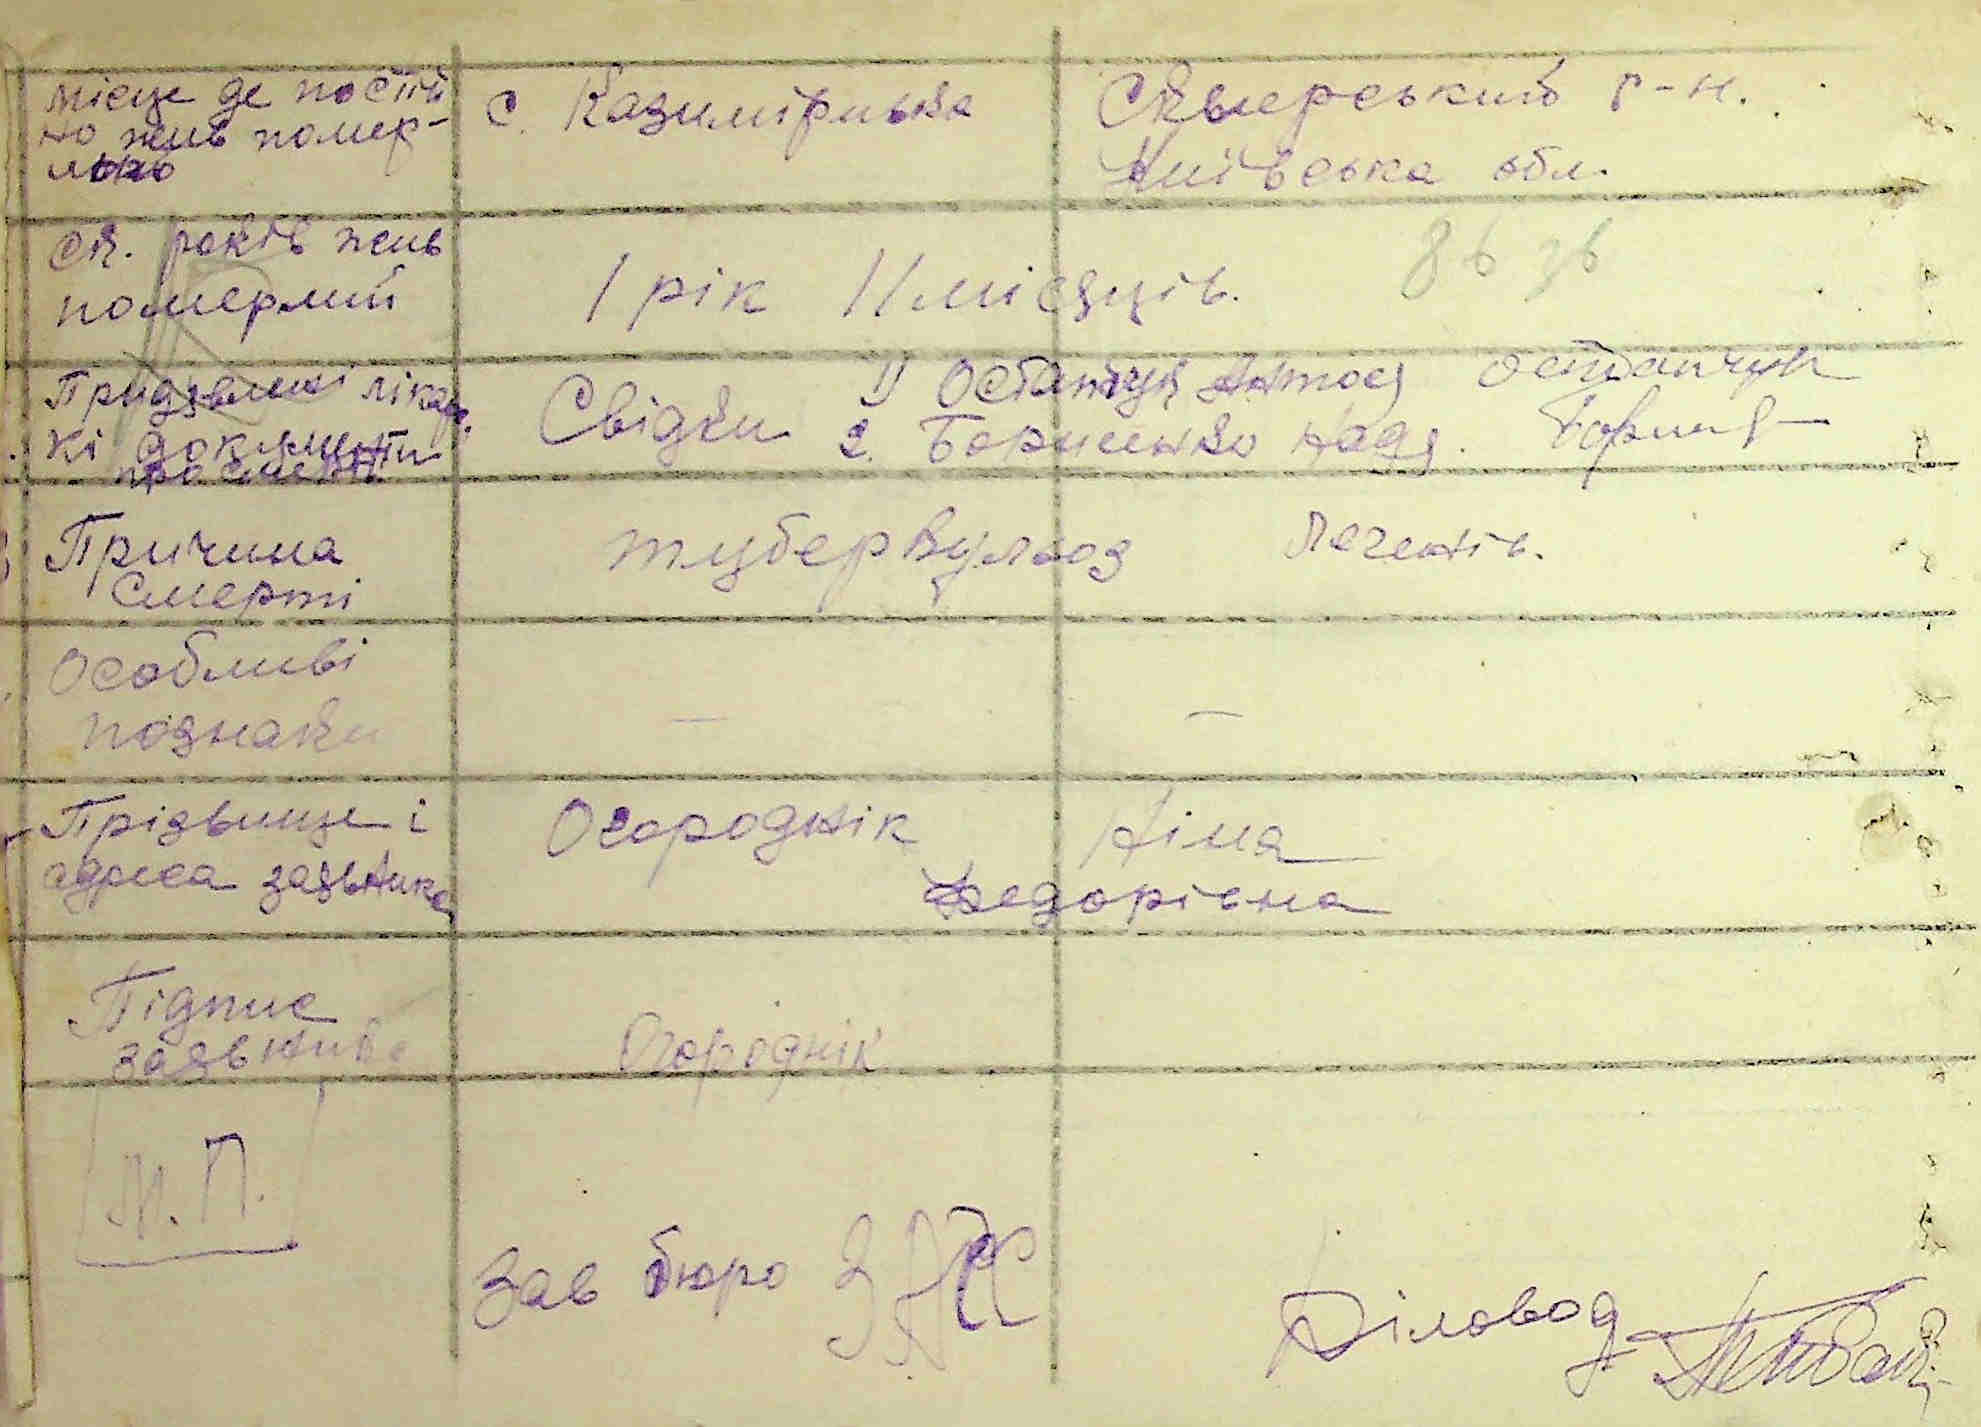 місце де постій
но жив помер-
лого
с. Казимірівка
Сквирський р-н.
Київська обл.
Ск. років жив
померлий
1 рік 11 місяців.
Придзвлені лікарс.
кі документи
про смерть
Свідки
1) Остапчук Антося Остапчук
2. Борисенко Надя. Борися
Причина
Смерті
туберкульоз легенів.
Особливі
познаки
— —
Прізвище і
адреса заявника
Огороднік Ніна
Федорівна
Підпис
заявника
Огороднік
М.П.
Зав бюро ЗАГС
Діловод